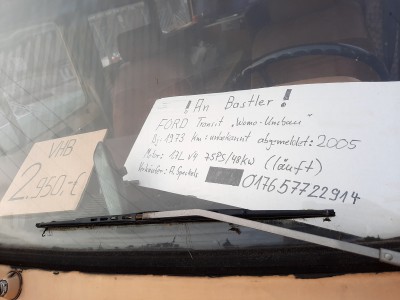 VHB
2.950.-€
! An Bastler !
FORD Transit „Womo-Umbau"
Bj: 1973 Km: unbekannt abgemeldet: 2005
Motor: 1,7L V4 75PS/48KW (läuft)
Verkaufen: A.
017657722914